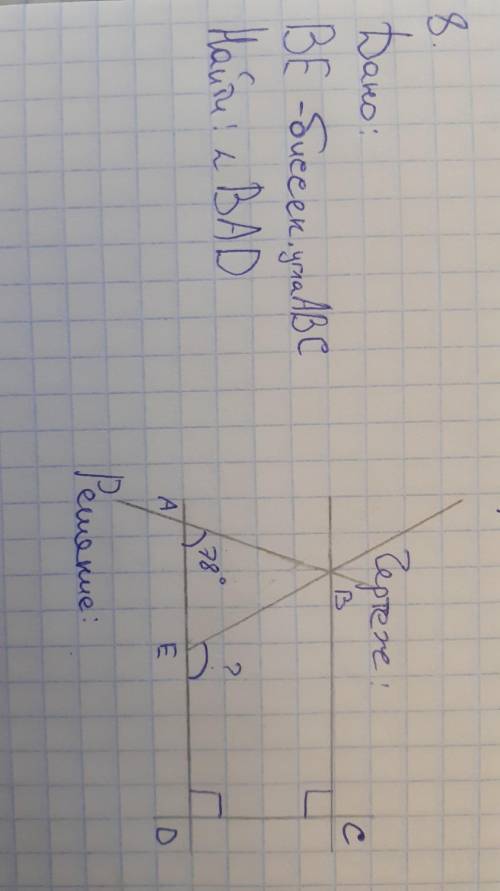 8.
Дано:
BE - биссек. угла ABC
Найди: ∠ BAD
Чертеж:
B
C
A
78°
E
?
D
Решение: